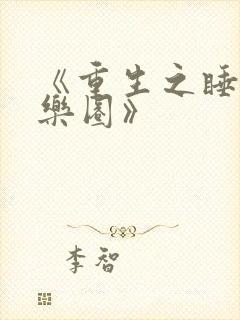 《重生之睡
樂園》
李智